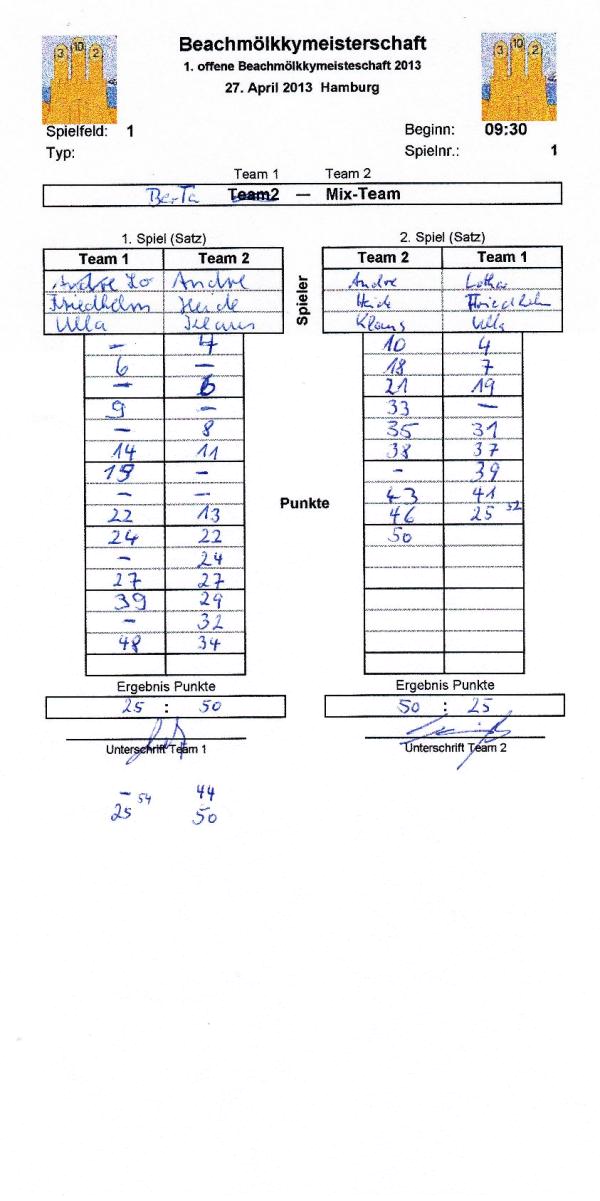 3 10 2
Beachmölkkymeisterschaft
3 10 2
1. offene Beachmölkkymeisteschaft 2013
27. April 2013 Hamburg
Spielfeld: 1 Beginn: 09:30
Typ: Spielnr.: 1
Team 1 Team 2
BerTa Team2 — Mix-Team
1. Spiel (Satz) 2. Spiel (Satz)
Team 1 Team 2 Spieler Team 2 Team 1
Andre Lo Andre Andre Lothar
Friedhelm Heide Heide Friedhelm
Ulla Klaus Klaus Ulla
– 4 10 4
6 – 18 7
– 6 21 19
9 – 33 –
– 8 35 31
14 11 38 37
19 – – 39
– – Punkte 43 41
22 13 46 25 52
24 22 50
– 24
27 27
39 29
– 32
48 34
Ergebnis Punkte Ergebnis Punkte
25 : 50 50 : 25
Unterschrift Team 1 Unterschrift Team 2
– 44
25 54 50